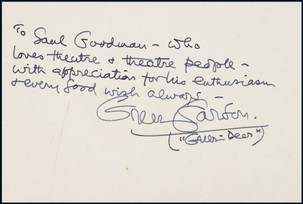 To Saul Goodman - who
loves theatre & theatre people -
with appreciation for his enthusiasm
& every good wish always -
Greer Garson.
("Green-Deer")